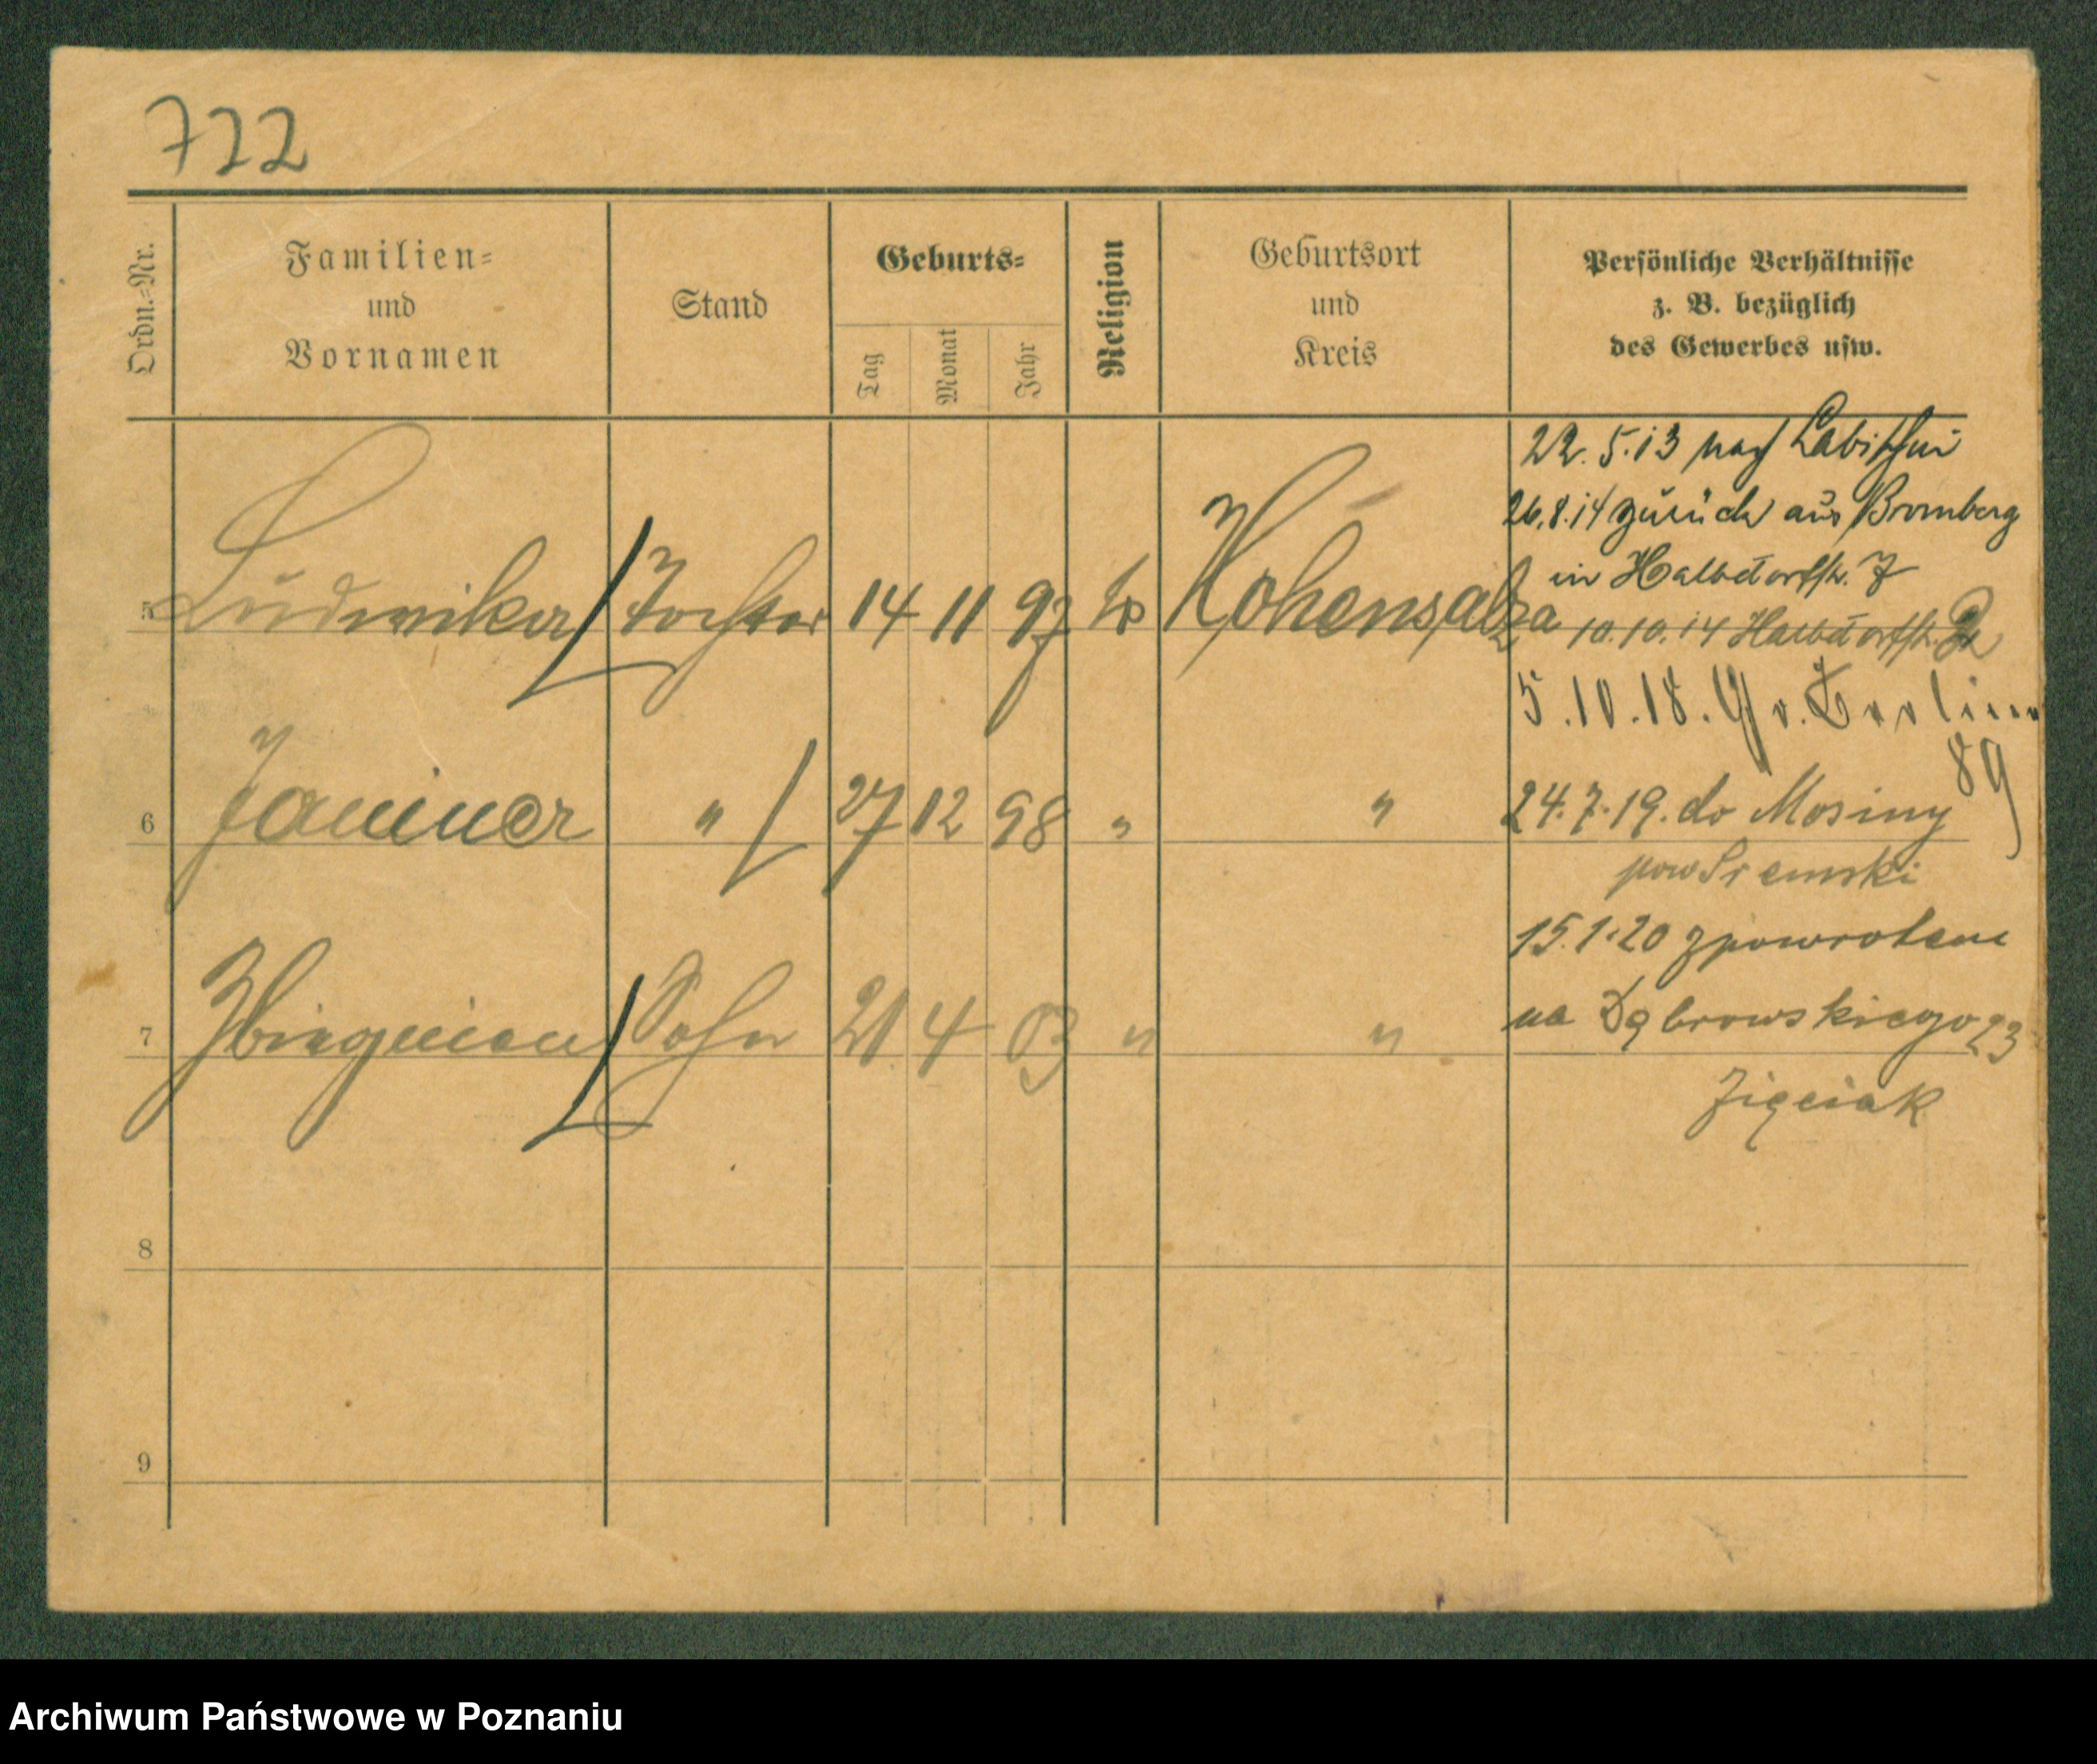 722
Ordn.-Nr.
Familien-
und
Vornamen
Stand
Geburts-
Tag
Monat
Jahr
Religion
Geburtsort
und
Kreis
Persönliche Verhältnisse
z. B. bezüglich
des Gewerbes usw.
22. 5. 13 nach Labischin
26. 8. 14 zurück aus Bromberg
in Halbdorfstr. 7
5 Ludwika Tochter 14 11 97 Hohensalza
10. 10. 14 Halbdorfstr.
5. 10. 18. Gr. Berliner
89
6 Janina " 27 12 98 " " 24. 7. 19. do Mosiny
pow Sremski
15. 1. 20 zpowrotem
7 Sohn 21 4 03 " " na Dąbrowskiego 23
Zięciak
8
9
Archiwum Państwowe w Poznaniu